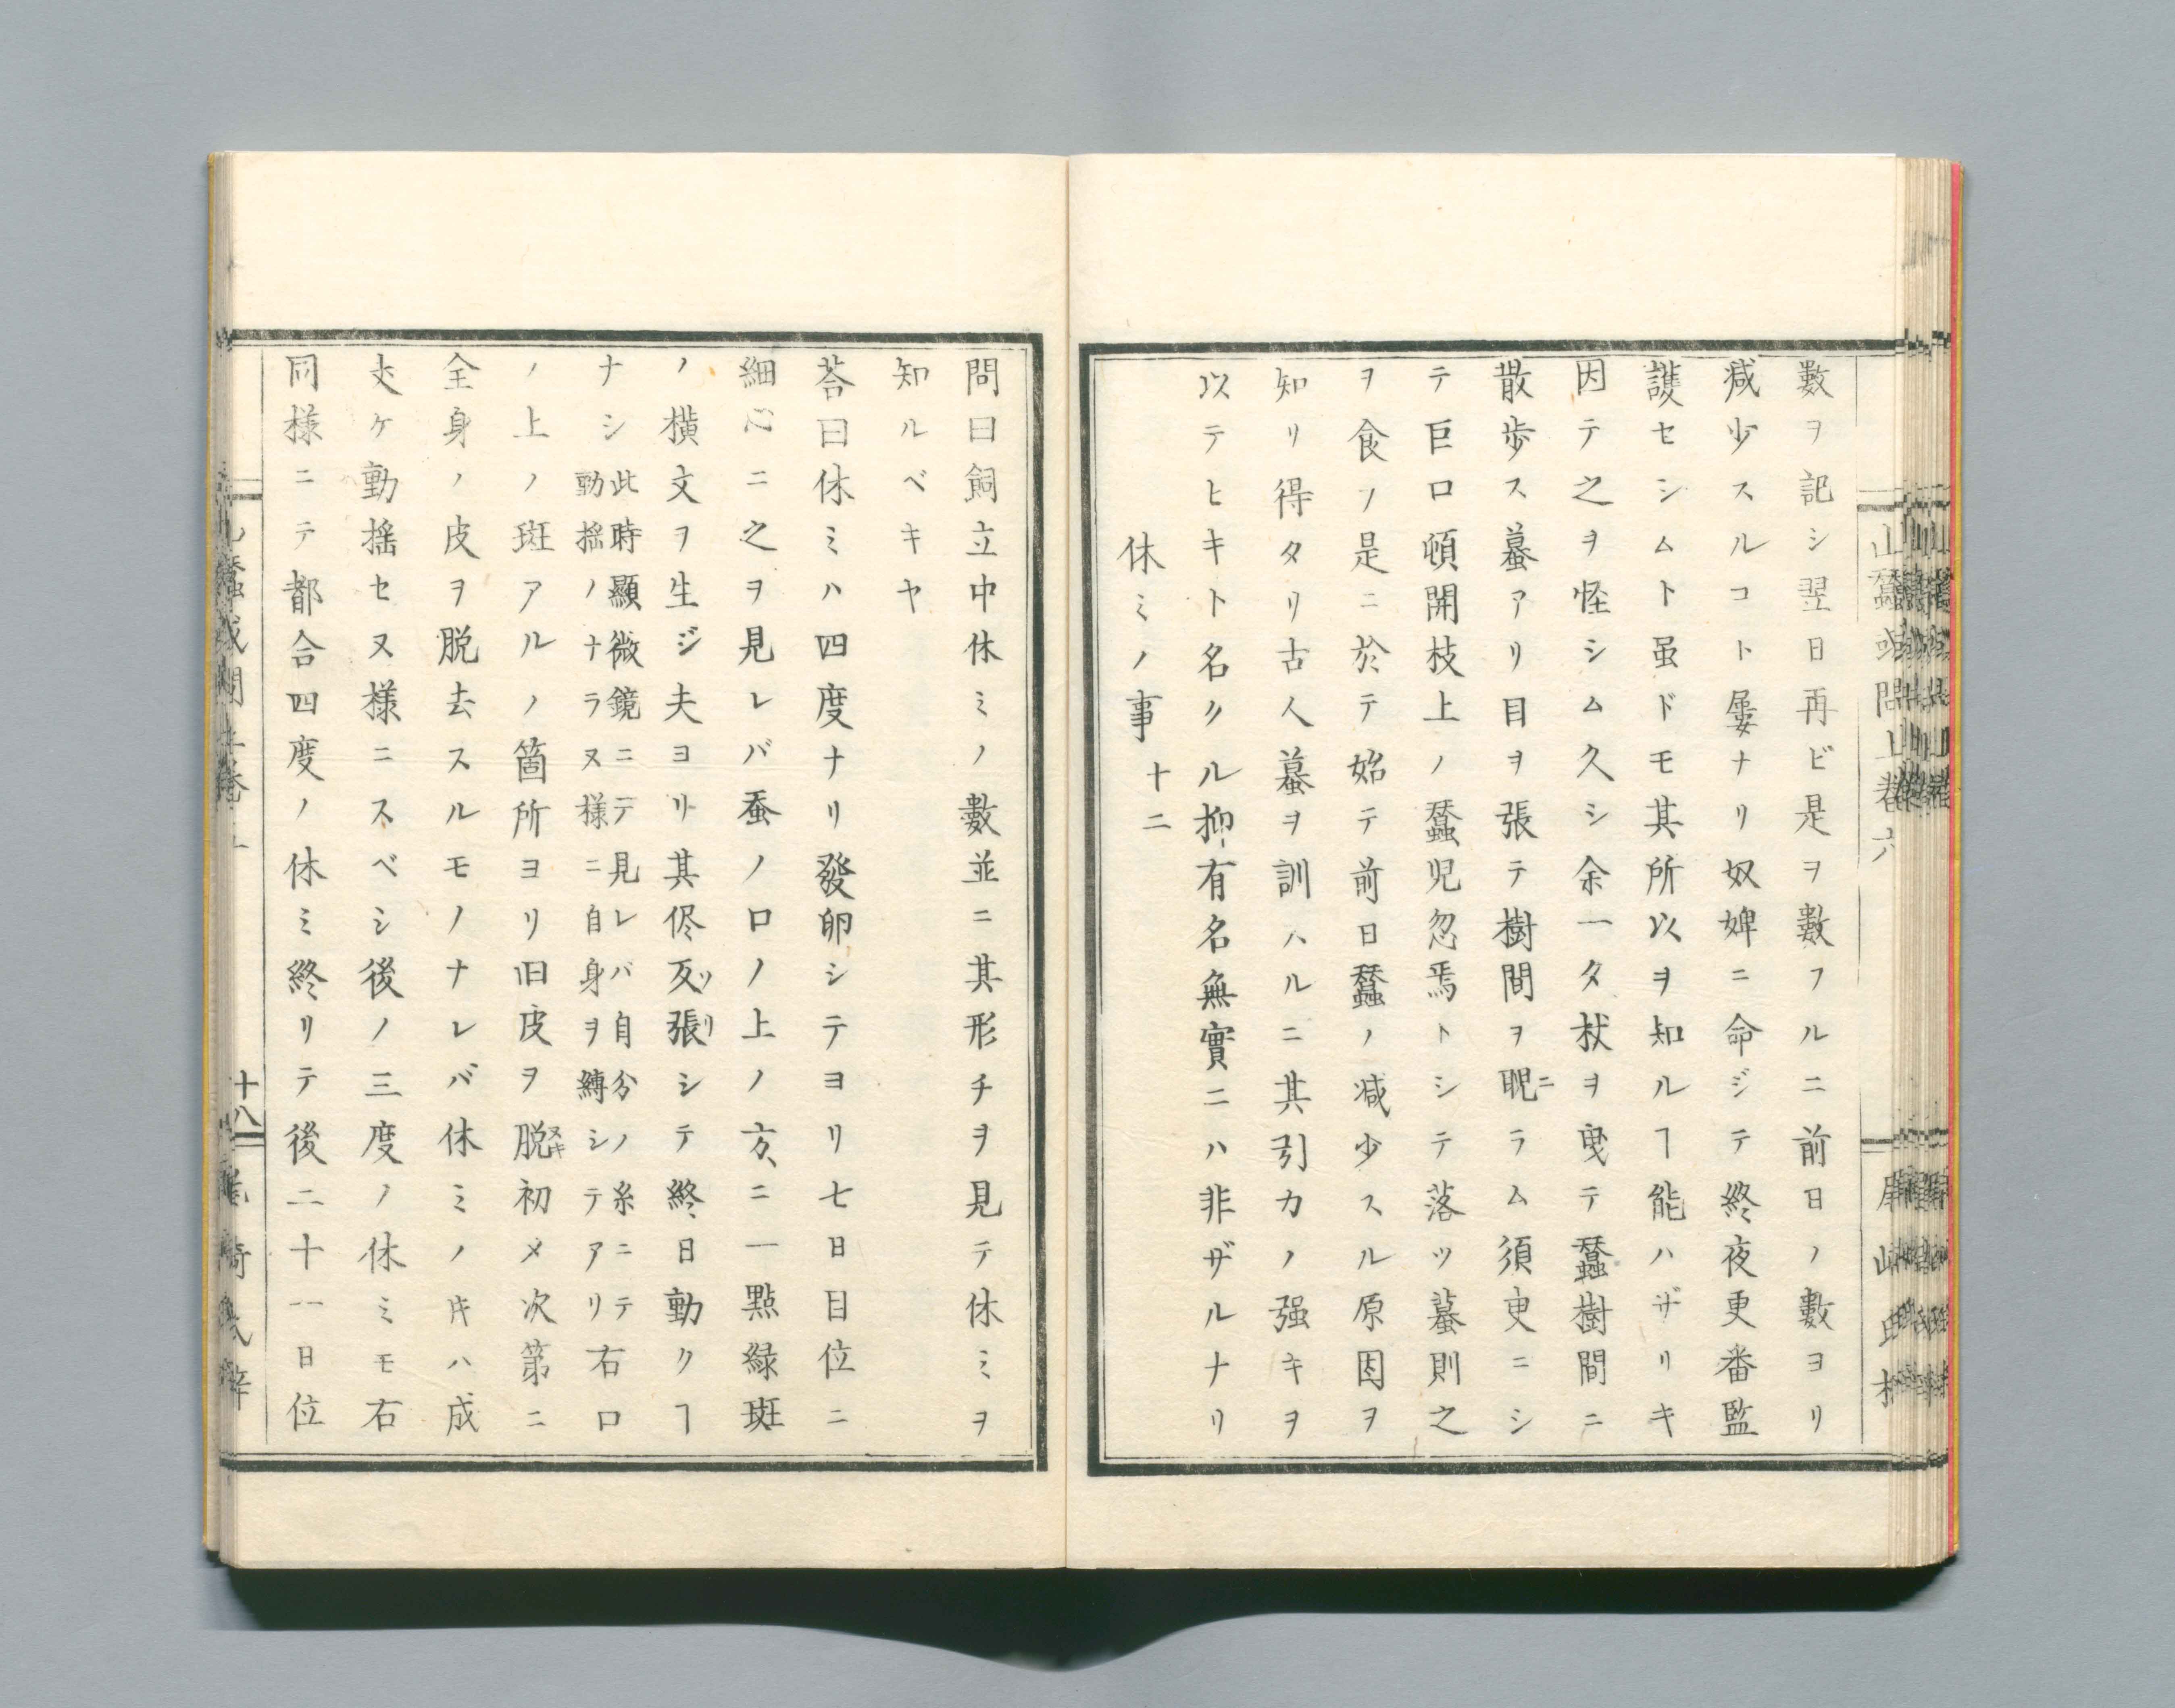 數ヲ記シ翌日再ビ是ヲ數フルニ前日ノ數ヨリ
減少スルコト屡ナリ奴婢ニ命ジテ終夜更番監
護セシムト虽ドモ其所以ヲ知ルヿ能ハザリキ
因テ之ヲ怪シム久シ余一タ杖ヲ曳テ蠶樹間ニ
散歩ス蟇アリ目ヲ張テ樹間ヲ睨ニラム須臾ニシ
テ巨口頓開枝上ノ蠶児忽焉トシテ落ツ蟇則之
ヲ食フ是ニ於テ始テ前日蠶ノ減少スル原因ヲ
知リ得タリ古人蟇ヲ訓ハルニ其引カノ强キヲ
以テヒキト名クル抑有名無實ニハ非ザルナリ
休ミノ事 十二
問曰飼立中休ミノ數並ニ其形チヲ見テ休ミヲ
知ルベキヤ
荅曰休ミハ四度ナリ發卵シテヨリ七日目位ニ
細心ニ之ヲ見レバ蚕ノ口ノ上ノ方ニ一點緑斑
ノ横文ヲ生ジ夫ヨリ其侭反ソリ張シテ終日動クヿ
ナシ此時顯微鏡ニテ見レバ自分ノ糸ニテ右口
動揺ノナラヌ様ニ自身ヲ縛シテアリ
ノ上ノ斑アルノ箇所ヨリ旧皮ヲ脱ヌキ初メ次第ニ
全身ノ皮ヲ脱去スルモノナレバ休ミノ𪜈ハ成
丈ケ動揺セヌ様ニスベシ後ノ三度ノ休ミモ右
同様ニテ都合四度ノ休ミ終リテ後二十一日位
十八